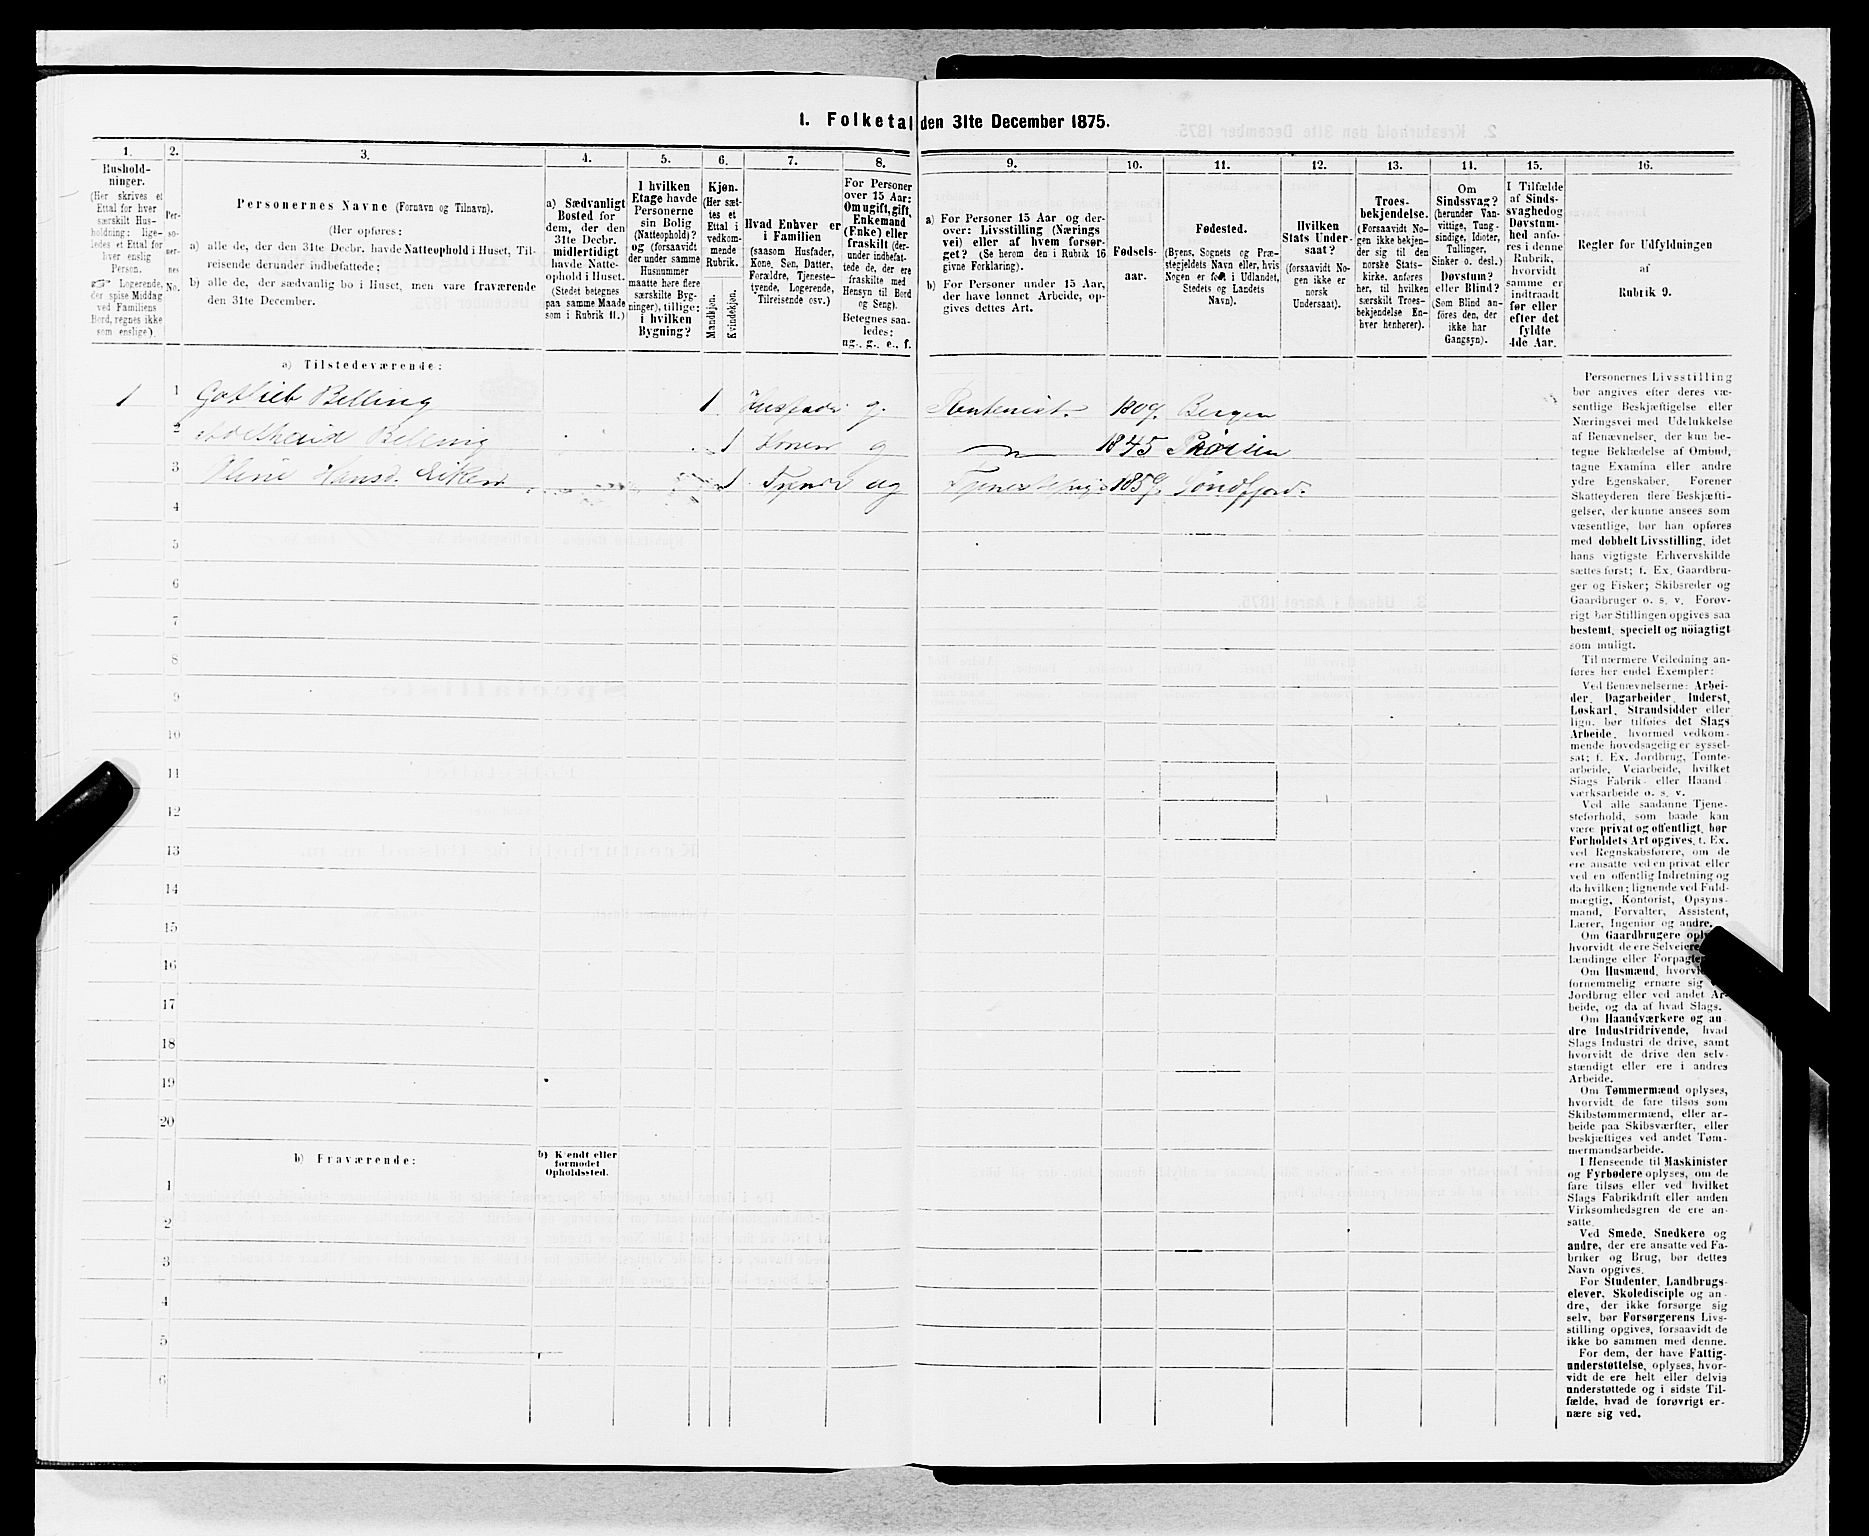 1. Folketal den 31te December 1875.
1.
Hushold-
ninger.
(Her skrives et
Ettal for hver
særskilt Hus-
holdning; lige-
ledes et Ettal for
hver enslig
Person.
Logerende,
der spise Middag
ved Familiens
Bord, regnes ikke
som enslige).
2.
Per-
so-
ner-
nes
No.
3.
Personernes Navne (Fornavn og Tilnavn).
(Her opføres:
a) alle de, der den 31te Decbr. havde Natteophold i Huset, Til-
reisende derunder indbefattede;
b) alle de, der sædvanlig bo i Huset, men vare fraværende
den 31te December.
4.
a) Sædvanligt
Bosted for
dem, der den
31te Decbr.
midlertidigt
havde Natte-
ophold i Huset.
(Stedet betegnes
paa samme Maade
som i Rubrik 11.)
5.
I hvilken
Etage havde
Personerne
sin Bolig
(Natteophold)?
og (forsaavidt
der under samme
Husnummer
maatte høre flere
særskilte Byg-
ninger), tillige:
i hvilken
Bygning?
6.
Kjøn.
(Her sæt-
tes et
Ettal i
vedkom-
mende
Rubrik.
Mandkjøn.
Kvindekjøn.
7.
Hvad Enhver er
i Familien
(saasom Husfader,
Kone, Søn, Datter,
Forældre, Tjeneste-
tyende, Logerende,
Tilreisende osv.)
8.
For Personer
over 15 Aar:
Om ugift, gift,
Enkemand
(Enke) eller
fraskilt (der-
under indbefat-
tede de, der ere
fraskilte med
Hensyn til Bord
og Seng).
Betegnes saa-
ledes:
ug., g., e., f.
9.
a) For Personer 15 Aar og der-
over: Livsstilling (Nærings
vei) eller af hvem forsør-
get? (Se herom den i Rubrik 16
givne Forklaring).
b) For Personer under 15 Aar,
der have lønnet Arbeide, op-
gives dettes Art.
10.
Fødsels-
aar.
11.
Fødested.
(Byens, Sognets og Præ-
stegjeldets Navn eller, hvis
Nogen er født i Udlandet,
Stedets og Landets
Navn).
12.
Hvilken
Stats Under-
saat?
(forsaavidt No-
gen ikke er
norsk
Undersaat).
13.
Troes-
bekjendelse.
(Forsaavidt No-
gen ikke bekjen-
der sig til den
norske Stats-
kirke, anføres
her, til hvilken
særskilt Troes-
bekjendelse En-
hver henhører).
14.
Om
Sindssvag?
(herunder Van-
vittige, Tung-
sindige, Idioter,
Tullinger,
Sinker o. desl.)
Døvstum?
eller Blind?
(Som Blind an-
føres den, der
ikke har
Gangsyn).
15.
I Tilfælde
af Sinds-
svaghed og
Døvstum-
hed anfø-
res i denne
Rubrik,
hvorvidt
samme er
indtraadt
før eller
efter det
fyldte
4de Aar.
16.
Regler for Udfyldningen
af
Rubrik 9.
a) Tilstedeværende:
1 1 Gotlieb Belling 1 Husfader g. Rentenist. 1809. Bergen
2 Adelhaid Belling 1 Kone g 1845
3 Oline Hansd. Eiken 1 Tjener ug Tjenestepige 1859. Søndfjord.
4
5
6
7
8
9
10
11
12
13
14
15
16
17
18
19
20
b) Fraværende:
b) Kjendt eller
formodet
Opholdssted.
1
2
3
4
5
6
Personernes Livsstilling
bør angives efter deres væ-
sentlige Beskjæftigelse eller
Næringsvei med Udelukkelse
af Benævnelser, der kun be-
tegne Beklædelse af Ombud,
tagne Examina eller andre
ydre Egenskaber. Forener
Skatteyderen flere Beskjæfti-
gelser, der kunne ansees som
væsentlige, bør han opføres
med dobbelt Livsstilling, idet
hans vigtigste Erhvervskilde
sættes først; f. Ex. Gaardbru-
ger og Fisker; Skibsreder og
Gaardbruger o. s. v. Forøv-
rigt bør Stillingen opgives saa
bestemt, specielt og nöiagtigt
som muligt.
Til nærmere Veiledning an-
føres her endel Exempler:
Ved Benævnelserne: Arbei-
der, Dagarbeider, Inderst,
Løskarl, Strandsidder eller
lign. bør tilføies det Slags
Arbeide, hvormed vedkom-
mende hovedsagelig er syssel-
sat; f. Ex. Jordbrug, Tomte-
arbeide, Veiarbeide, hvilket
Slags Fabrik- eller Haand
værksarbeide o. s. v.
Ved alle saadanne Tjene-
steforhold, som baade kan
være privat og offentligt, bør
Forholdets Art opgives, f. Ex.
ved Regnskabsførere, om de
ere ansatte ved en privat eller
ved en offentlig Indretning og
da hvilken; lignende ved Fuld-
mægtig, Kontorist, Opsyns-
mand, Forvalter, Assistent,
Lærer, Ingeniør og andre.
Om Gaardbrugere
hvorvidt de ere Selveiere,
lændinge eller
Om Husmænd,
fornemmelig ernære sig
Jordbrug eller ved andet Ar-
beide, og da af hvad Slags.
Om Haandværkere og an
dre Industridrivende, hvad
Slags Industri de drive, samt
hvorvidt de drive den selv-
stændigt eller ere i andres
Arbeide.
Om Tømmermænd oplyses,
hvorvidt de fare tilsøs som
Skibstømmermænd, eller ar-
beide paa Skibsværfter, eller
beskjæftiges ved andet Tøm-
mermandsarbeide.
I Henseende til Maskinister
og Fyrbødere oplyses, om de
fare tilsøs eller ved hvilket
Slags Fabrikdrift eller anden
Virksomhedsgren de ere an-
satte.
Ved Smede, Snedkere og
andre, der ere ansatte ved Fa-
briker og Brug, bør dettes
Navn opgives.
For Studenter, Landbrugs-
elever, Skoledisciple og an-
dre, der ikke forsørge sig
selv, bør Forsørgerens Livs-
stilling opgives, forsaavidt de
ikke bo sammen med denne.
For dem, der have Fattig-
understøttelse, oplyses, hvor-
vidt de ere helt eller delvis
understøttede og i sidste Til-
fælde, hvad de forøvrigt er-
nære sig ved.